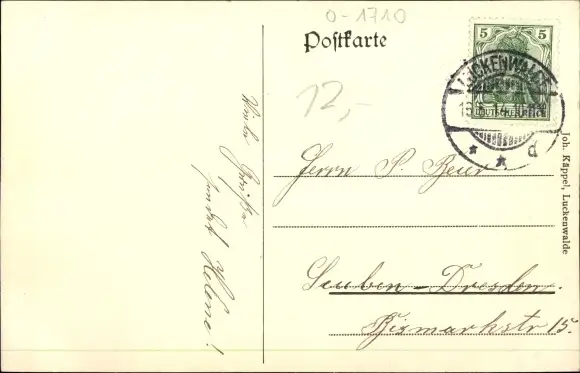 0-1710
Postkarte
12,-
5 5
DEUTSCHES REICH
LUCKENWALDE
14
* * d
Joh. Käppel, Luckenwalde
Herrn P. Beier
Leuben-Dresden.
Bismarckstr 15.
Grüße
sendet Helene!